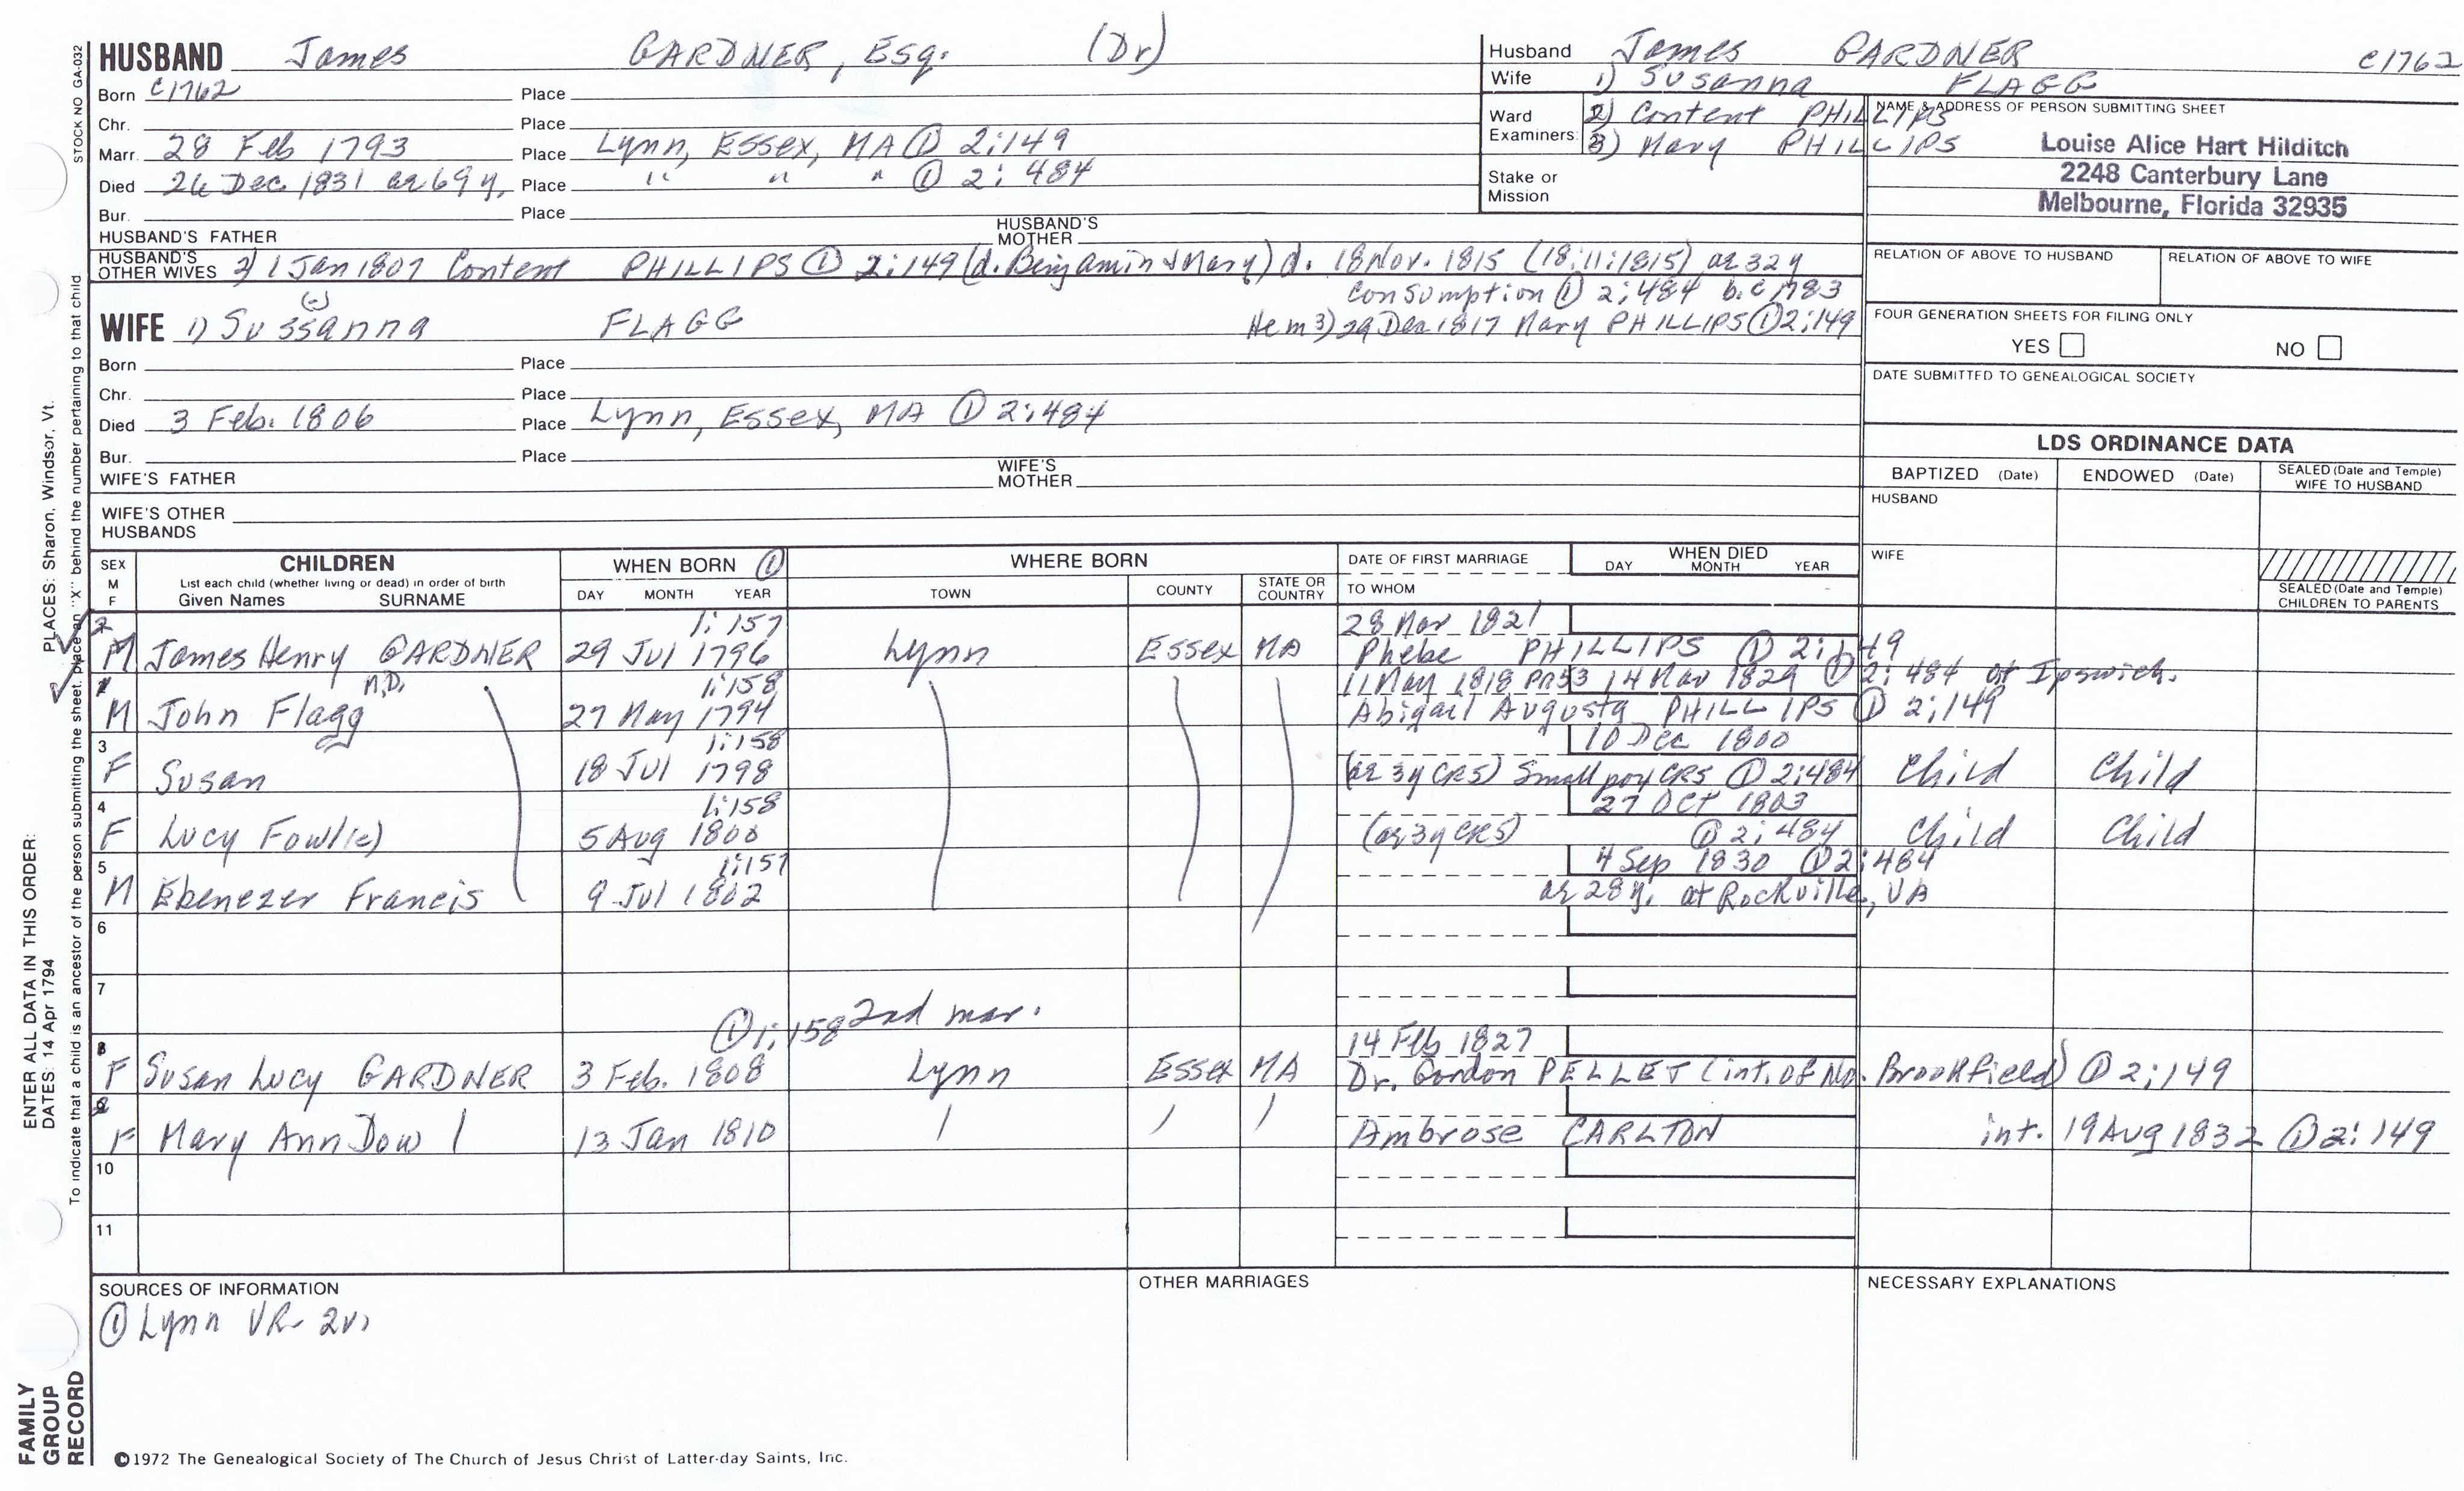 STOCK NO GA-032
HUSBAND James GARDNER, Esq. (Dr)
Born c1762 Place
Chr. Place
Marr. 28 Feb 1793 Place Lynn, Essex, MA ① 2:149
Died 26 Dec 1831 ae 69 y. Place " " " ① 2:484
Bur. Place
HUSBAND'S FATHER
HUSBAND'S MOTHER
HUSBAND'S OTHER WIVES 2) 1 Jan 1807 Content PHILLIPS ① 2:149 (d. Benjamin & Mary) d. 18 Nov. 1815 (18:11:1815) ae 32 y
Consumption ① 2:484 b.c 1783
He m 3) 29 Dec 1817 Mary PHILLIPS ① 2:149
WIFE 1) Sussanna (-) FLAGG
Born Place
Chr. Place
Died 3 Feb. 1806 Place Lynn, Essex, MA ① 2:484
Bur. Place
WIFE'S FATHER
WIFE'S MOTHER
WIFE'S OTHER HUSBANDS
Husband James GARDNER c1762
Wife 1) Susanna FLAGG
Ward 2) Content PHILLIPS
Examiners: 3) Mary PHILLIPS
Stake or Mission
NAME & ADDRESS OF PERSON SUBMITTING SHEET
Louise Alice Hart Hilditch
2248 Canterbury Lane
Melbourne, Florida 32935
RELATION OF ABOVE TO HUSBAND RELATION OF ABOVE TO WIFE
FOUR GENERATION SHEETS FOR FILING ONLY
YES NO
DATE SUBMITTED TO GENEALOGICAL SOCIETY
LDS ORDINANCE DATA
BAPTIZED (Date) ENDOWED (Date) SEALED (Date and Temple) WIFE TO HUSBAND
HUSBAND
WIFE
SEALED (Date and Temple) CHILDREN TO PARENTS
SEX M F
CHILDREN
List each child (whether living or dead) in order of birth
Given Names SURNAME
WHEN BORN ①
DAY MONTH YEAR
WHERE BORN
TOWN COUNTY STATE OR COUNTRY
DATE OF FIRST MARRIAGE
TO WHOM
WHEN DIED
DAY MONTH YEAR
2 1:157 28 Mar 1821
M James Henry GARDNER 29 Jul 1796 Lynn Essex MA Phebe PHILLIPS ① 2:149
1 M.D. 1:158 11 May 1818 14 Mar 1829 ① 2:484 at Ipswich.
M John Flagg 27 May 1794 Abigail Augusta PHILLIPS ① 2:149
3 1:158 10 Dec 1800
F Susan 18 Jul 1798 (ae 3y CR5) Small pox CR5 ① 2:484 Child Child
4 1:158 27 Oct 1803
F Lucy Fowl(e) 5 Aug 1800 (ae 3y CR5) ① 2:484 Child Child
5 1:157 4 Sep 1830 ① 2:484
M Ebenezer Francis 9 Jul 1802 ae 28 y. at Rockville, VA
6
7
① 1:158 2nd mar.
14 Feb 1827
F Susan Lucy GARDNER 3 Feb. 1808 Lynn Essex MA Dr. Gordon PELLET (int. of No. Brookfield) ① 2:149
F Mary Ann Dow 13 Jan 1810 Ambrose CARLTON int. 19 Aug 1832 ① 2:149
10
11
SOURCES OF INFORMATION
① Lynn VR 2v.
OTHER MARRIAGES
NECESSARY EXPLANATIONS
©1972 The Genealogical Society of The Church of Jesus Christ of Latter-day Saints, Inc.
FAMILY GROUP RECORD
ENTER ALL DATA IN THIS ORDER:
DATES: 14 Apr 1794 PLACES: Sharon, Windsor, Vt.
To indicate that a child is an ancestor of the person submitting the sheet, place an "X" behind the number pertaining to that child